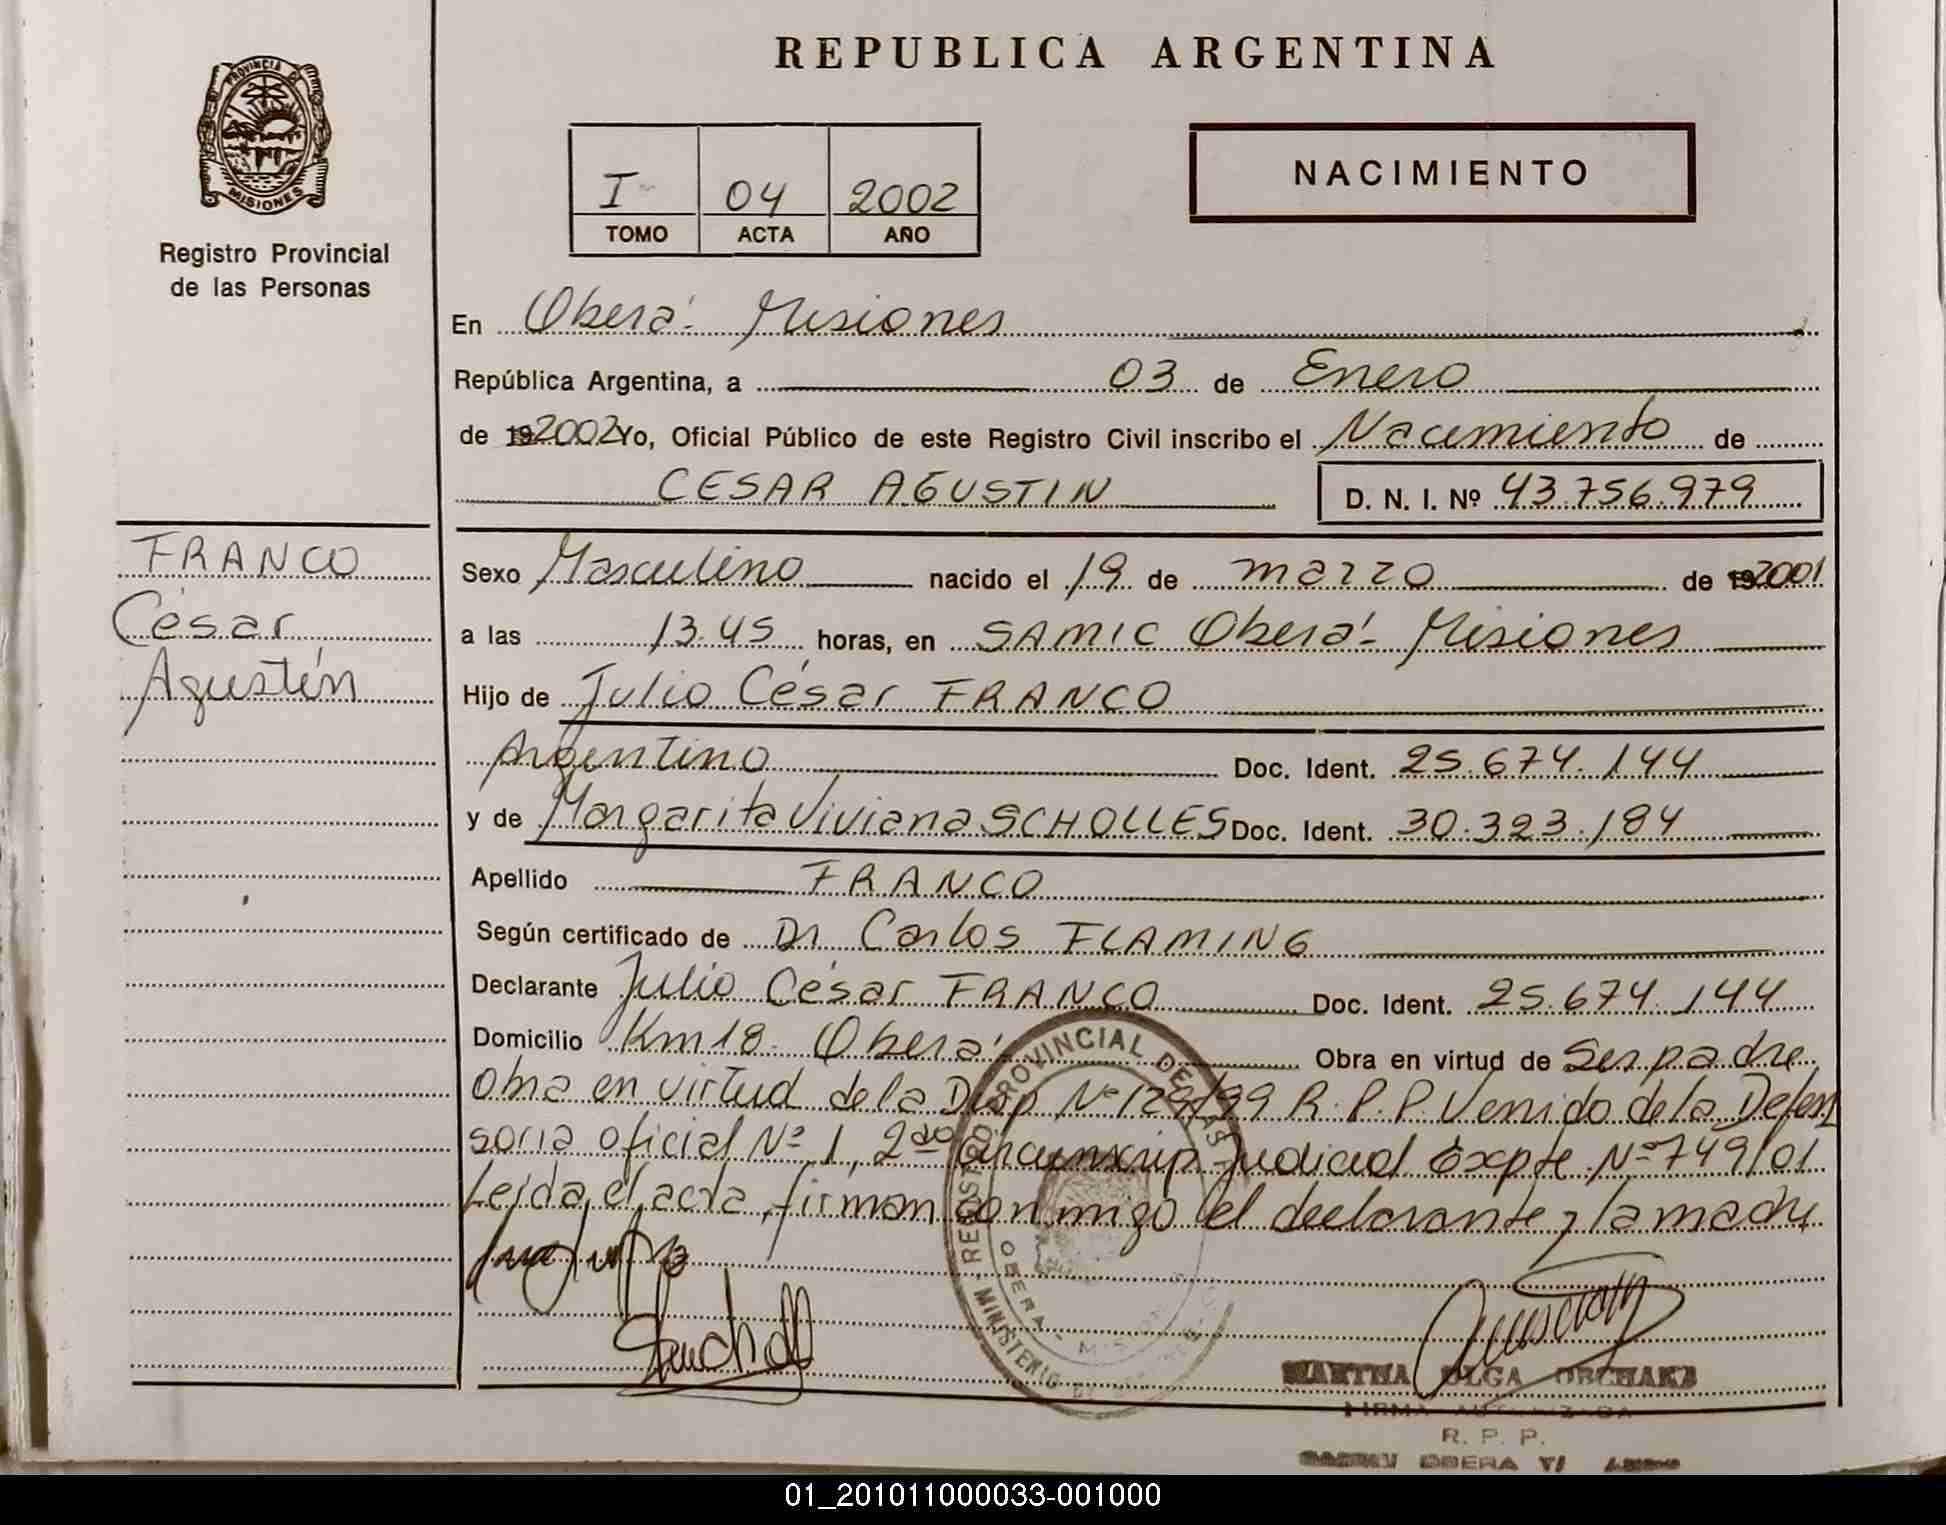 REPUBLICA ARGENTINA
PROVINCIA DE
MISIONES
Registro Provincial
de las Personas
NACIMIENTO
I 04 2002
TOMO ACTA AÑO
En Oberá - Misiones
República Argentina, a 03 de Enero
de 192002 Yo, Oficial Público de este Registro Civil inscribo el Nacimiento de
CESAR AGUSTIN D. N. I. Nº 43.756.979
FRANCO
César
Agustín
Sexo Masculino nacido el 19 de marzo de 192001
a las 13.45 horas, en SAMIC Oberá - Misiones
Hijo de Julio César FRANCO
Argentino Doc. Ident. 25.674.144
y de Margarita Viviana SCHOLLES Doc. Ident. 30.323.184
Apellido FRANCO
Según certificado de Dr Carlos FLAMING
Declarante Julio César FRANCO Doc. Ident. 25.674.144
Domicilio Km 18 - Oberá Obra en virtud de Ser padre
Obra en virtud de la Disp Nº /99 R.P.P. Venido de la Defen
soria oficial Nº 1, 2da Circunscrip Judicial Expte Nº 749/01
Leída el acta, firman conmigo el declarante y la madre
REGISTRO PROVINCIAL DE LAS
OBERA - MISIONES
MINISTERIO DE
MARTHA OLGA
FIRMA AUTORIZADA
R. P. P.
OBERA
01_201011000033-001000